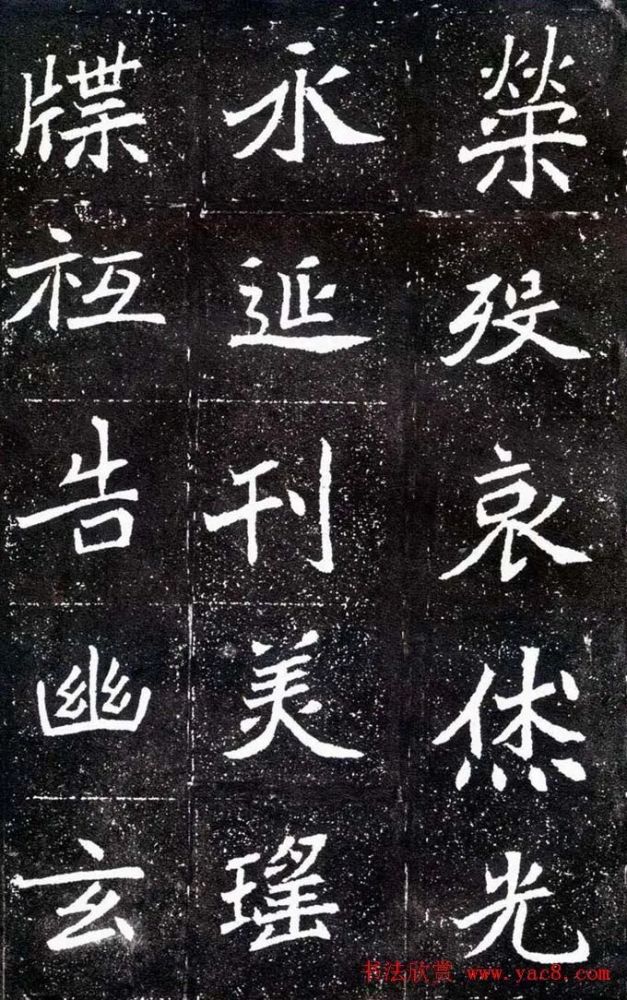 榮歿哀烋光
永延刊美瑤
牒祗告幽玄
书法欣赏 www.yac8.com